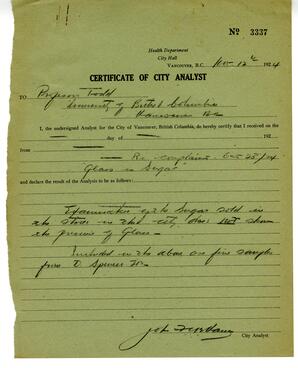 No 3337
Health Department
City Hall
VANCOUVER, B.C. Nov 12th 1924
CERTIFICATE OF CITY ANALYST
TO Professor Todd
University of British Columbia
Vancouver BC
I, the undersigned Analyst for the City of Vancouver, British Columbia, do hereby certify that I received on the
day of
from
Re complaint Oct 25/24
Glass in Sugar
and declare the result of the Analysis to be as follows:
Examination of the Sugar sold in
the Stores in this city, does not show
the presence of Glass.
Included in the above are five samples
from D Spencer
City Analyst.